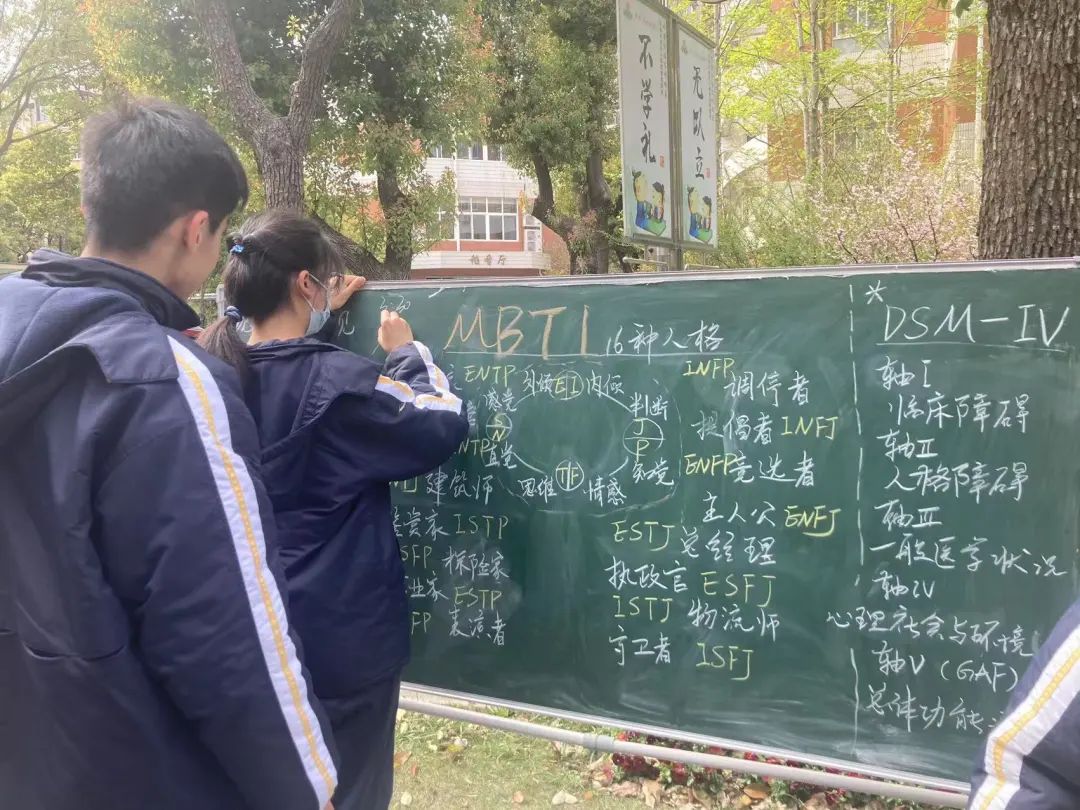 不学礼
无以立
MBTI 16种人格
ENTP
外倾 EI 内倾
感觉
S
N
直觉
判断
J
P
知觉
思维 TF 情感
NTP
建筑师
鉴赏家 ISTP
SFP 探险家
业家 ESTP
FP 表演者
INFP
调停者
提倡者 INFJ
ENFP 竞选者
主人公 ENFJ
ESTJ 总经理
执政官 ESFJ
ISTJ 物流师
守卫者 ISFJ
* DSM-IV
轴I
临床障碍
轴II
人格障碍
轴III
一般医学状况
轴IV
心理社会与环境
轴V (GAF)
总体功能